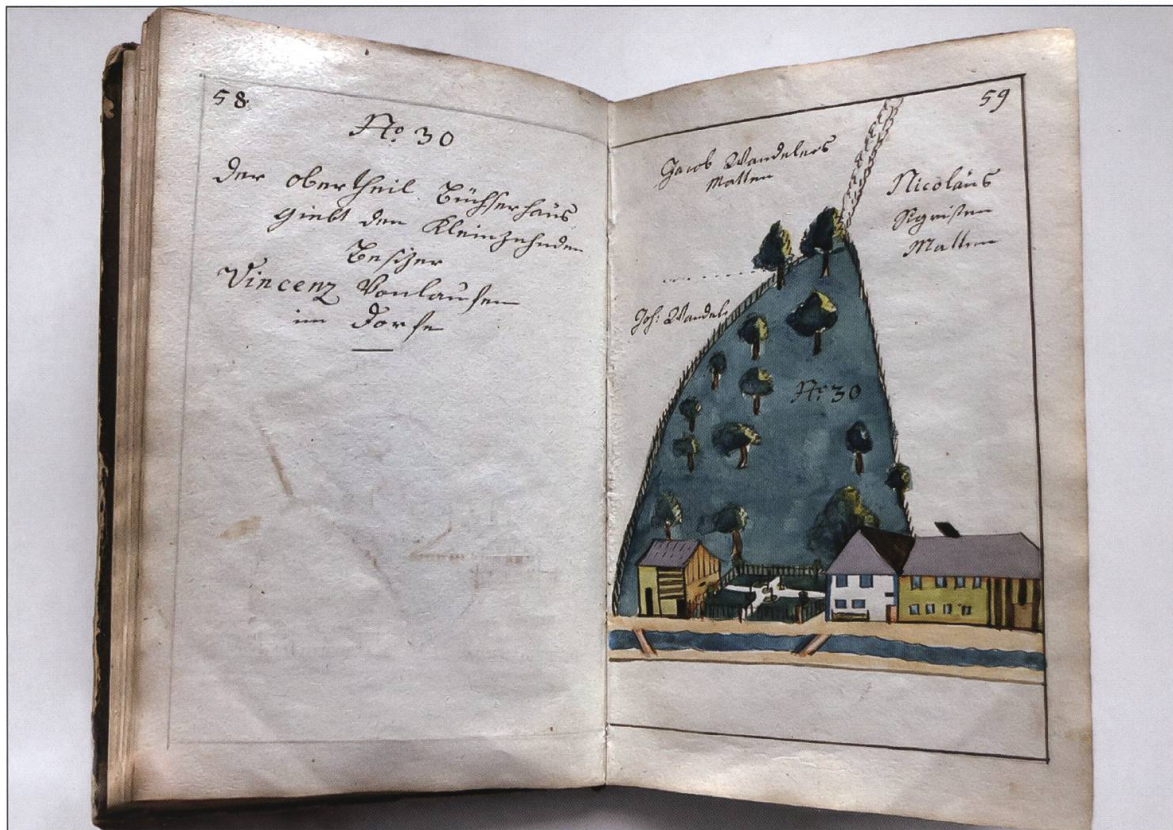 58
No 30
Der obertheil Büchserhaus
giebt den Kleinzehnden
Besizer
Vincenz Vonlaufen
im Dorfe
59
Jacob Wandelers
Matten
Nicolaus
Sigristen
Matten
Joh: Wandel
No 30